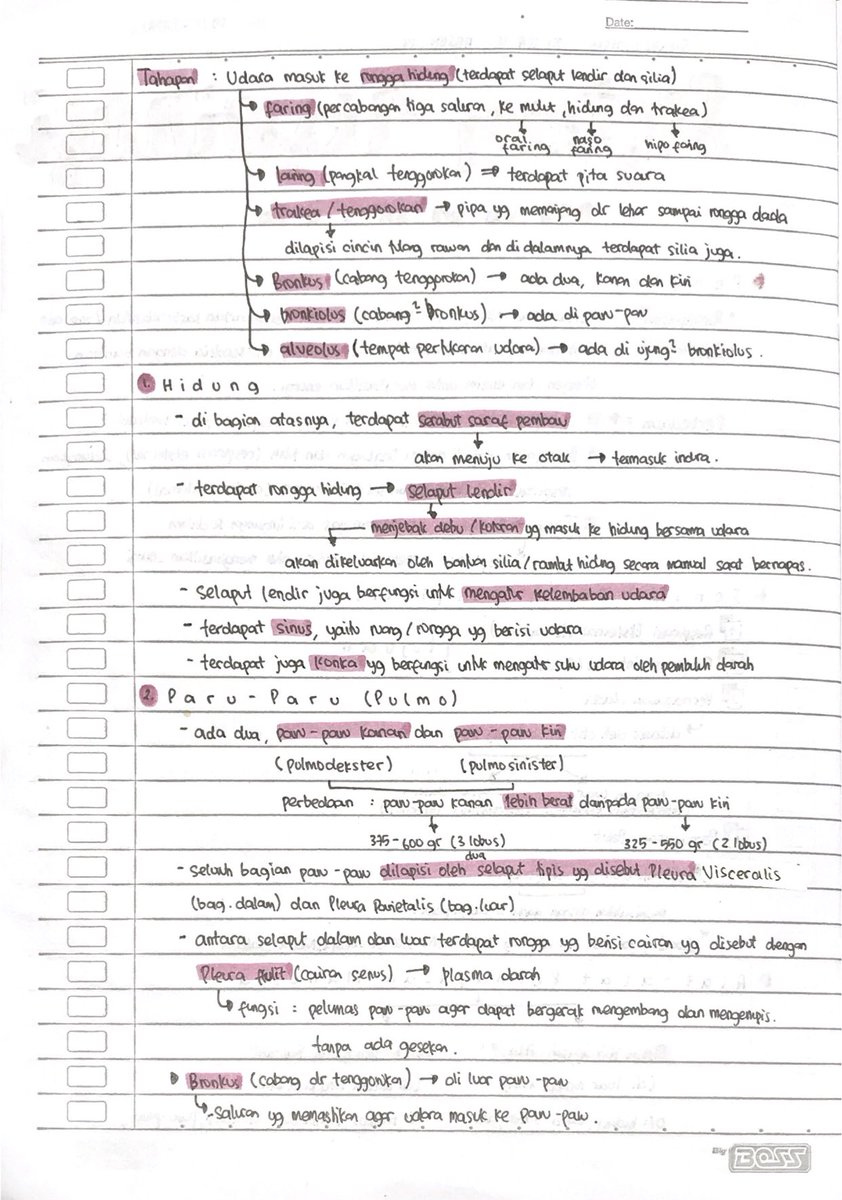 Date:
Tahapan : Udara masuk ke rongga hidung (terdapat selaput lendir dan silia)
faring (percabangan tiga saluran, ke mulut, hidung dan trakea)
oral faring naso faring hipo faring
laring (pangkal tenggorokan) ⇒ terdapat pita suara
trakea / tenggorokan → pipa yg memanjang dr leher sampai rongga dada
dilapisi cincin tulang rawan dan di dalamnya terdapat silia juga.
Bronkus (cabang tenggorokan) → ada dua, kanan dan kiri
bronkiolus (cabang² bronkus) → ada di paru-paru
alveolus (tempat pertukaran udara) → ada di ujung² bronkiolus.
1. Hidung
- di bagian atasnya, terdapat serabut saraf pembau
akan menuju ke otak → termasuk indra.
- terdapat rongga hidung → selaput lendir
menjebak debu / kotoran yg masuk ke hidung bersama udara
akan dikeluarkan oleh bantuan silia/rambut hidung secara manual saat bernapas.
- selaput lendir juga berfungsi untuk mengatur kelembaban udara
- terdapat sinus, yaitu ruang/rongga yg berisi udara
- terdapat juga konka yg berfungsi untuk mengatur suhu udara oleh pembuluh darah
2. Paru-Paru (Pulmo)
- ada dua, paru-paru kanan dan paru-paru kiri
(pulmodekster) (pulmosinister)
perbedaan : paru-paru kanan lebih berat daripada paru-paru kiri
375-600 gr (3 lobus) 325-550 gr (2 lobus)
- seluruh bagian paru-paru dilapisi oleh dua selaput tipis yg disebut Pleura Visceralis
(bag. dalam) dan Pleura Parietalis (bag. luar)
- antara selaput dalam dan luar terdapat rongga yg berisi cairan yg disebut dengan
Pleura fluit (cairan serius) → plasma darah
fungsi : pelumas paru-paru agar dapat bergerak mengembang dan mengempis.
tanpa ada gesekan.
Bronkus (cabang dr tenggorokan) → di luar paru-paru
- Saluran yg memastikan agar udara masuk ke paru-paru.
Big BOSS